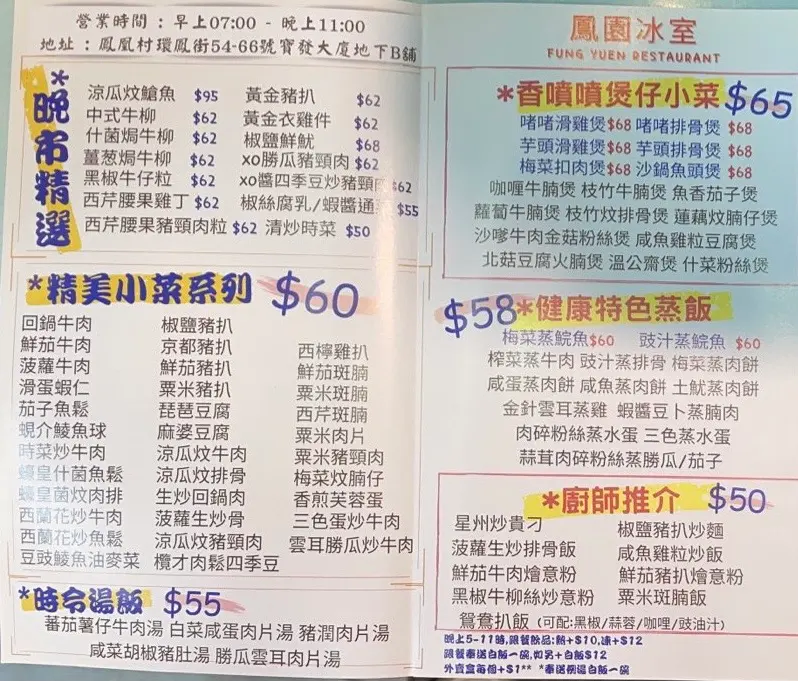 營業時間：早上07:00 - 晚上11:00
地址：鳳凰村環鳳街54-66號寶發大廈地下B舖
*晚市精選
涼瓜炆鎗魚 $95
中式牛柳 $62
什菌焗牛柳 $62
薑葱焗牛柳 $62
黑椒牛仔粒 $62
西芹腰果雞丁 $62
西芹腰果豬頸肉粒 $62
黃金豬扒 $62
黃金衣雞件 $62
椒鹽鮮魷 $68
xo勝瓜豬頸肉 $62
xo醬四季豆炒豬頸肉 $62
椒絲腐乳/蝦醬通菜 $55
清炒時菜 $50
*精美小菜系列 $60
回鍋牛肉
鮮茄牛肉
菠蘿牛肉
滑蛋蝦仁
茄子魚鬆
蜆介鯪魚球
時菜炒牛肉
蠔皇什菌魚鬆
蠔皇菌炆肉排
西蘭花炒牛肉
西蘭花炒魚鬆
豆豉鯪魚油麥菜
椒鹽豬扒
京都豬扒
鮮茄豬扒
粟米豬扒
琵琶豆腐
麻婆豆腐
涼瓜炆牛肉
涼瓜炆排骨
生炒回鍋肉
菠蘿生炒骨
涼瓜炆豬頸肉
欖才肉鬆四季豆
西檸雞扒
鮮茄斑腩
粟米斑腩
西芹斑腩
粟米肉片
粟米豬頸肉
梅菜炆腩仔
香煎芙蓉蛋
三色蛋炒牛肉
雲耳勝瓜炒牛肉
*時令湯飯 $55
蕃茄薯仔牛肉湯 白菜咸蛋肉片湯 豬潤肉片湯
咸菜胡椒豬肚湯 勝瓜雲耳肉片湯
鳳園冰室
FUNG YUEN RESTAURANT
*香噴噴煲仔小菜 $65
啫啫滑雞煲$68 啫啫排骨煲 $68
芋頭滑雞煲$68 芋頭排骨煲 $68
梅菜扣肉煲$68 沙鍋魚頭煲 $68
咖喱牛腩煲 枝竹牛腩煲 魚香茄子煲
蘿蔔牛腩煲 枝竹炆排骨煲 蓮藕炆腩仔煲
沙嗲牛肉金菇粉絲煲 咸魚雞粒豆腐煲
北菇豆腐火腩煲 溫公齋煲 什菜粉絲煲
$58*健康特色蒸飯
梅菜蒸鯇魚$60 豉汁蒸鯇魚 $60
榨菜蒸牛肉 豉汁蒸排骨 梅菜蒸肉餅
咸蛋蒸肉餅 咸魚蒸肉餅 土魷蒸肉餅
金針雲耳蒸雞 蝦醬豆卜蒸腩肉
肉碎粉絲蒸水蛋 三色蒸水蛋
蒜茸肉碎粉絲蒸勝瓜/茄子
*廚師推介 $50
星州炒貴刁
菠蘿生炒排骨飯
鮮茄牛肉燴意粉
黑椒牛柳絲炒意粉
椒鹽豬扒炒麵
咸魚雞粒炒飯
鮮茄豬扒燴意粉
粟米斑腩飯
鴛鴦扒飯 (可配:黑椒/蒜蓉/咖喱/豉油汁)
晚上5-11時,跟餐飲品:熱+$10,凍+$12
跟餐奉送白飯一碗,如另+白飯$12
外賣盒每個+$1** *奉送例湯白飯一碗